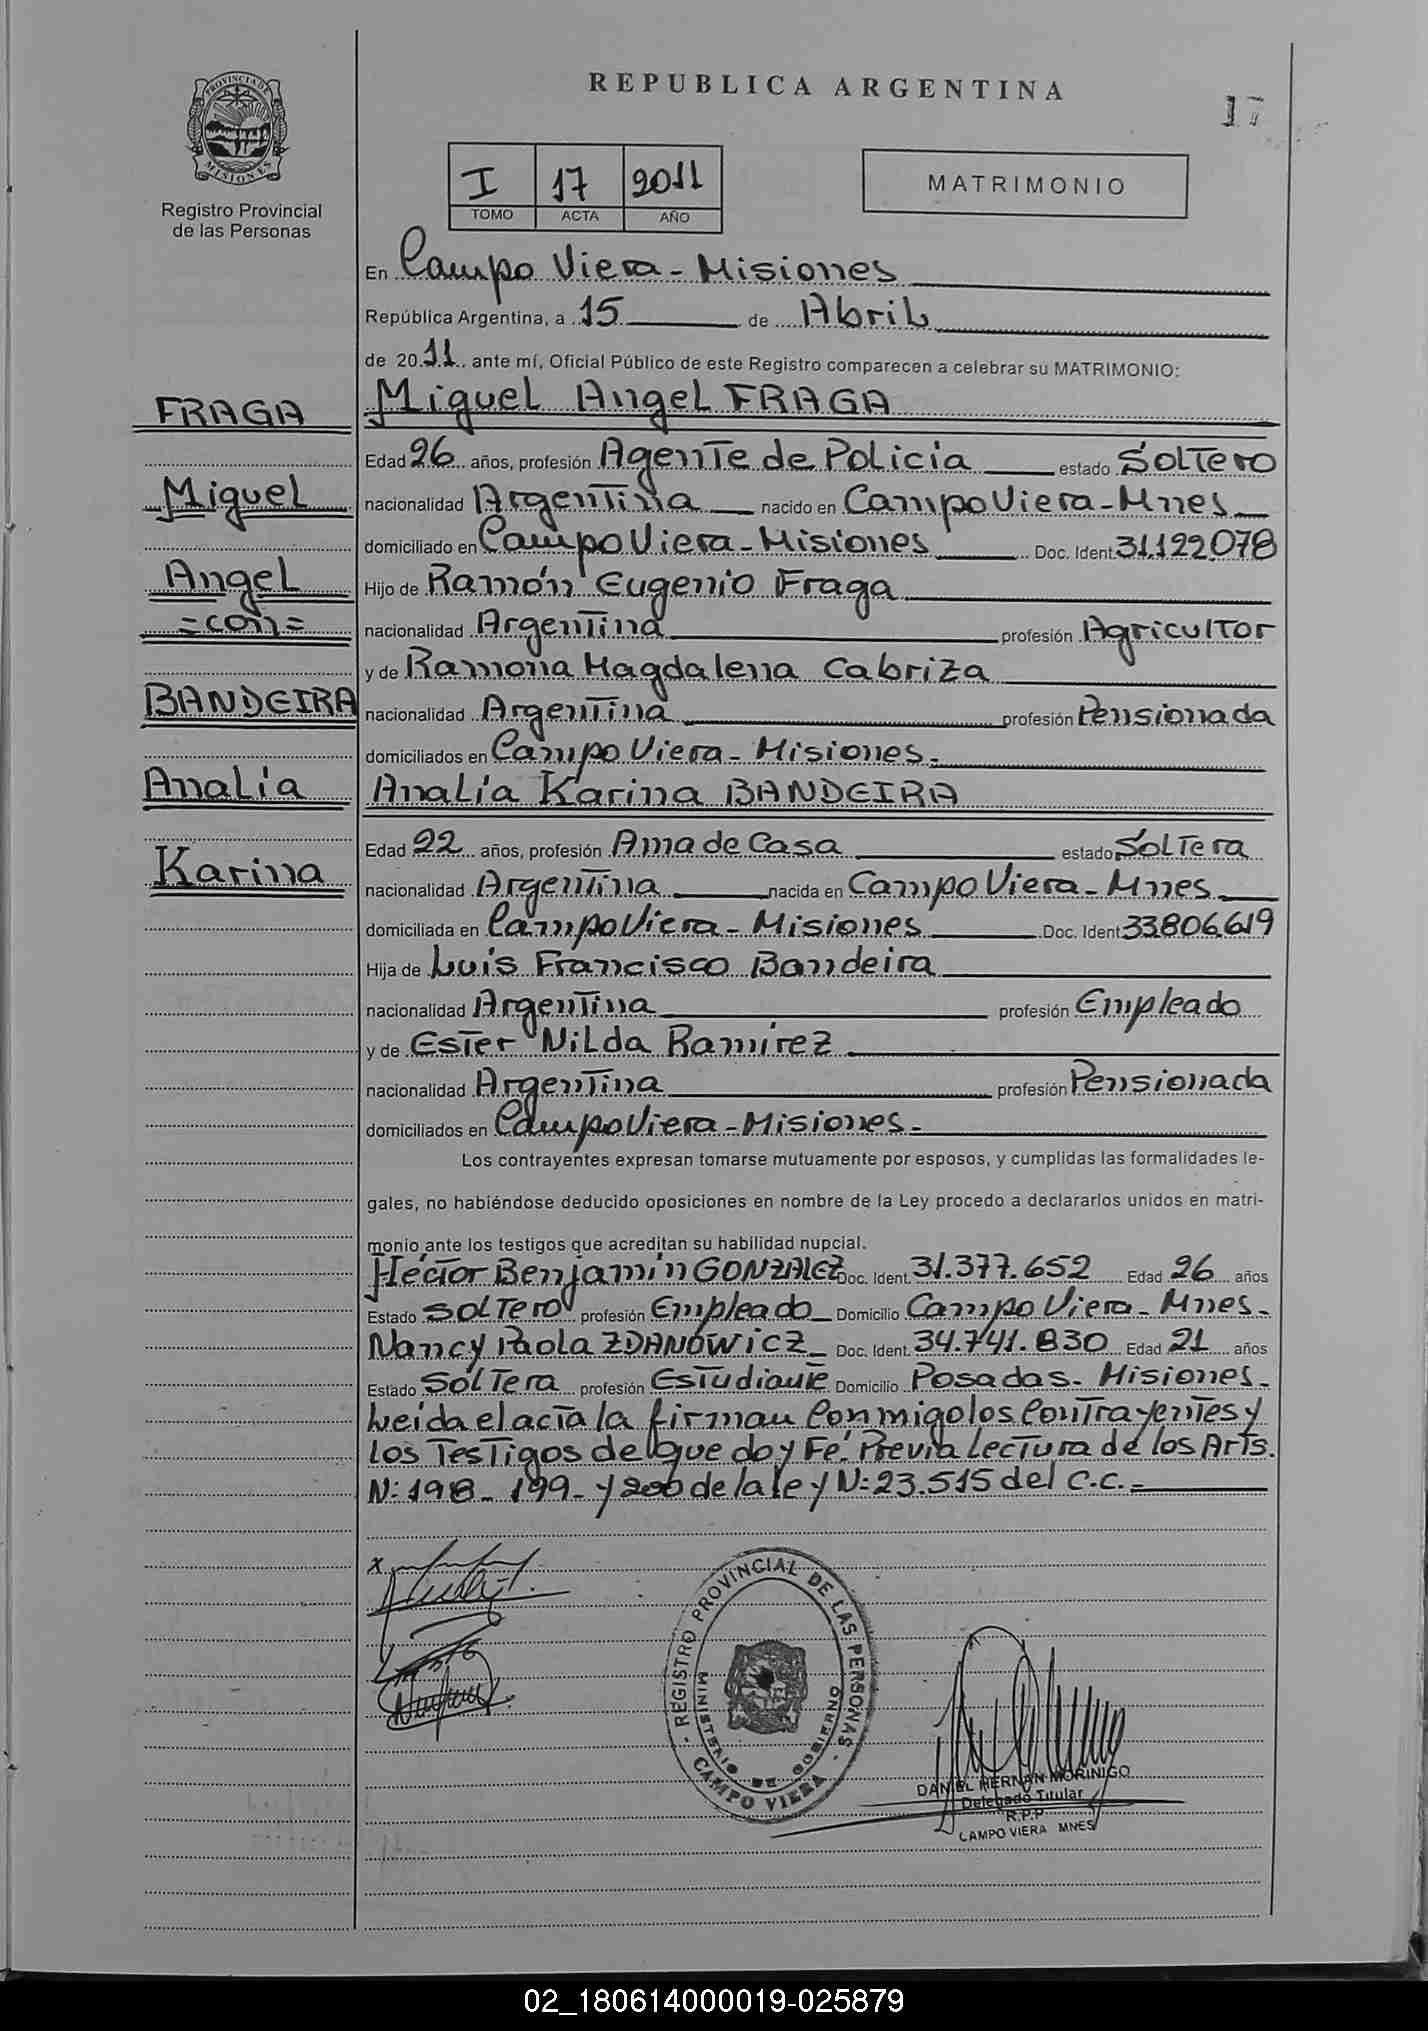 REPUBLICA ARGENTINA
17
PROVINCIA DE
MISIONES
Registro Provincial
de las Personas
I 17 2011
TOMO ACTA AÑO
MATRIMONIO
En Campo Viera - Misiones
República Argentina, a 15 de Abril
de 2011 ante mí, Oficial Público de este Registro comparecen a celebrar su MATRIMONIO:
FRAGA
Miguel
Angel
=con=
BANDEIRA
Analia
Karina
Miguel Angel FRAGA
Edad 26 años, profesión Agente de Policía estado Soltero
nacionalidad Argentina nacido en Campo Viera - Mnes
domiciliado en Campo Viera - Misiones Doc. Ident. 31.122.078
Hijo de Ramón Eugenio Fraga
nacionalidad Argentina profesión Agricultor
y de Ramona Magdalena Cabriza
nacionalidad Argentina profesión Pensionada
domiciliados en Campo Viera - Misiones.
Analía Karina BANDEIRA
Edad 22 años, profesión Ama de Casa estado Soltera
nacionalidad Argentina nacida en Campo Viera - Mnes
domiciliada en Campo Viera - Misiones Doc. Ident 33.806.619
Hija de Luis Francisco Bandeira
nacionalidad Argentina profesión Empleado
y de Ester Nilda Ramírez
nacionalidad Argentina profesión Pensionada
domiciliados en Campo Viera - Misiones.
Los contrayentes expresan tomarse mutuamente por esposos, y cumplidas las formalidades le-
gales, no habiéndose deducido oposiciones en nombre de la Ley procedo a declararlos unidos en matri-
monio ante los testigos que acreditan su habilidad nupcial.
Héctor Benjamín GONZALEZ Doc. Ident. 31.377.652 Edad 26 años
Estado Soltero profesión Empleado Domicilio Campo Viera - Mnes.
Nancy Paola ZDANOWICZ Doc. Ident. 34.741.830 Edad 21 años
Estado Soltera profesión Estudiante Domicilio Posadas - Misiones.
Leída el acta la firman conmigo los contrayentes y
los Testigos de que doy Fé. Previa lectura de los Arts.
N: 198 - 199 - y 200 de la ley N: 23.515 del C.C.
x
REGISTRO PROVINCIAL DE LAS PERSONAS
MINISTERIO DE GOBIERNO
CAMPO VIERA
DANIEL HERNAN MORINIGO
Delegado Titular
R.P.P
CAMPO VIERA MNES
02_180614000019-025879